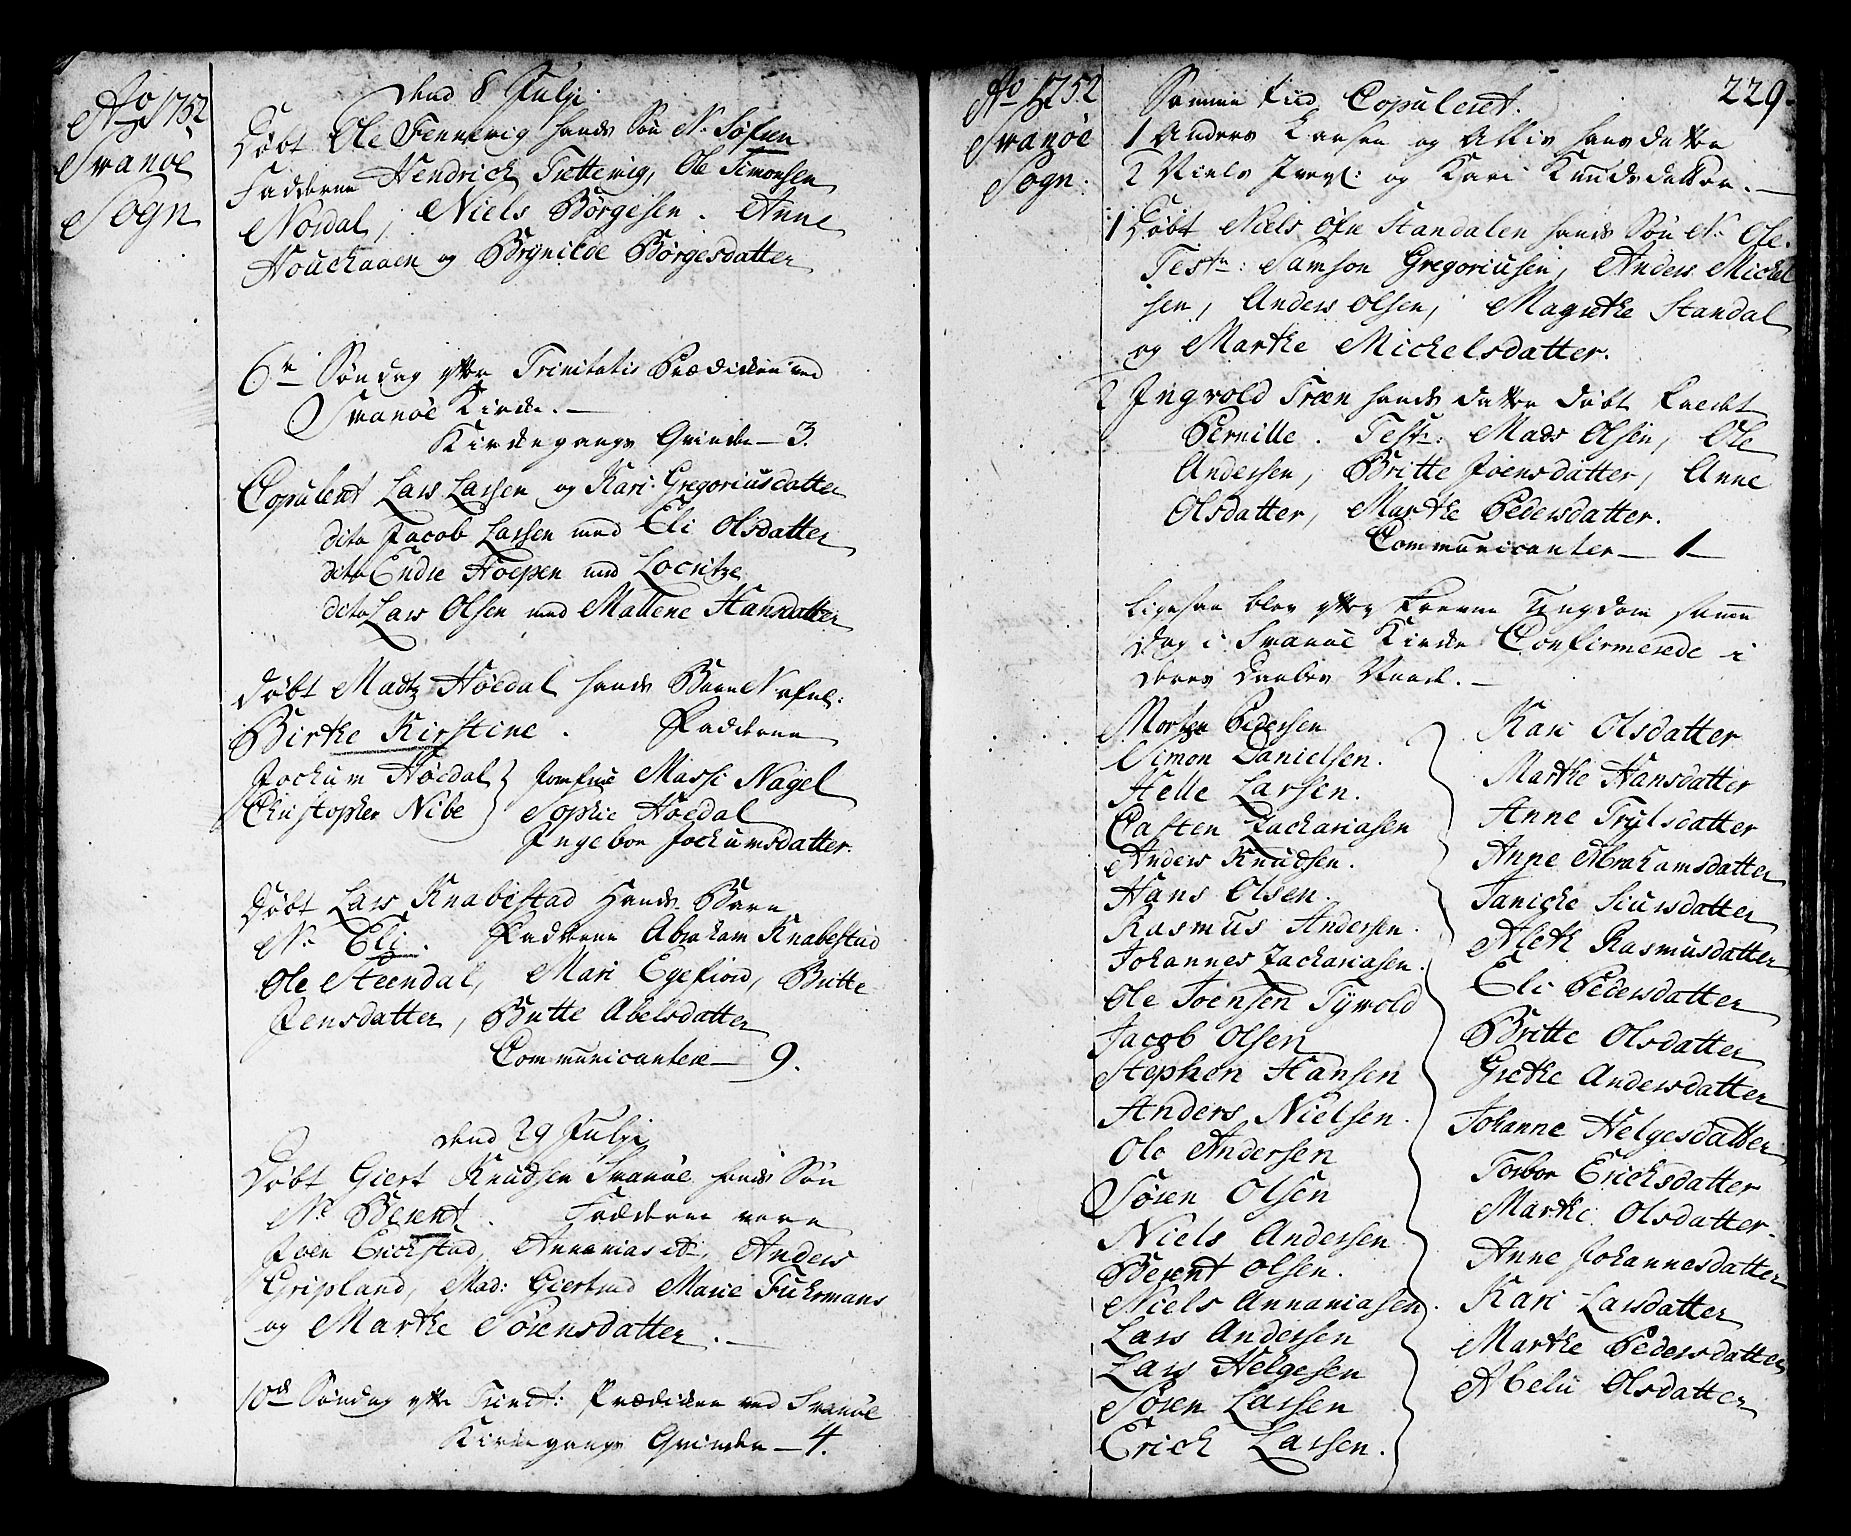 Ao 1752
Svanöe
Sogn
Dend 8 Julij.
Döbt Ole Fennevig hands Sön N. Söfren
Fadderne Hendrich Tuttevig, Ole Simonsen
Nordal, Niels Börgesen. Anne
Houchaaen og Brynilde Börgesdatter
6te Söndag efter Trinitatis Prædicken ved
Svanöe Kirke.
Kirkegangs Qvinder 3.
Copulent Lars Larsen og Kari Gregoriusdatter
dito Jacob Larsen med Eli Olsdatter
dito Endre Hoepen med Locritze
dito Lars Olsen med Mallene Hansdatter
Döbt Madtz Höedal hands Barn N
Birthe Kirstine. Fadderne
Jochum Höedal Jomfrue Massi Nagel
Christopher Nibe Sophie Höedal
Ingebor Jochumsdatter.
Döbt Lars Knabestad Hands Barn
N. Eli. Fadderne Abraham Knabestad
Ole Steendal, Mari Egefiord, Britte
Jensdatter, Britte Abelsdatter
Communicantere 9.
Dend 29 Julij
Döbt Giert Knudsen Svanöe hands Sön
No Berent. Fadderne vare
Joen Erichstad, Annanias it:, Anders
Gripland, Mad: Giertrud Marie Fuhrmans
og Marthe Sörensdatter.
10de Söndag efter Trinit: Prædicken ved Svanöe
Kirkegangs Qvinder 4.
Ao 1752
Svanöe
Sogn:
229.
Samme tiid Copuleret.
1 Anders Larsen og Hansdatter
2 Niels og Kari Knudsdatter.
1 Döbt Niels Öfre Standalen hands Sön N. Ole.
Test: Samson Gregoriusen, Anders Michel
sen, Anders Olsen, Magrethe Standal
og Marthe Michelsdatter.
2 Ingvold Træn hands datter döbt kaldt
Pernille. Test: Mads Olsen, Ole
Andersen, Britte Joensdatter, Anne
Olsdatter, Marthe Pedersdatter.
Communicanter 1
Ligesaa blev efter Ungdom samme
dag i Svanöe Kirke Confirmerede i
deres Daabes
Morten Pedersen
Simon Danielsen.
Helle Larsen.
Casten Zachariasen
Anders Knudsen.
Hans Olsen.
Rasmus Andersen.
Johannes Zachariasen.
Ole Joensen Tyvold
Jacob Olsen
Stephen Hansen
Anders Nielsen.
Ole Andersen
Sören Olsen
Niels Andersen
Berent Olsen.
Niels Annaniasen.
Lars Andersen
Lars Helgesen
Sören Larsen
Erich Larsen.
Kari Olsdatter
Marthe Hansdatter
Anne Trulsdatter
Anne Abrahamsdatter
Janiche Siursdatter
Aleth Rasmusdatter
Eli Pedersdatter
Britte Olsdatter
Grethe Andersdatter
Johanne Helgesdatter
Torbor Erichsdatter
Marthe Olsdatter.
Anne Johannesdatter
Kari Larsdatter
Marthe Pedersdatter
Abelu Olsdatter